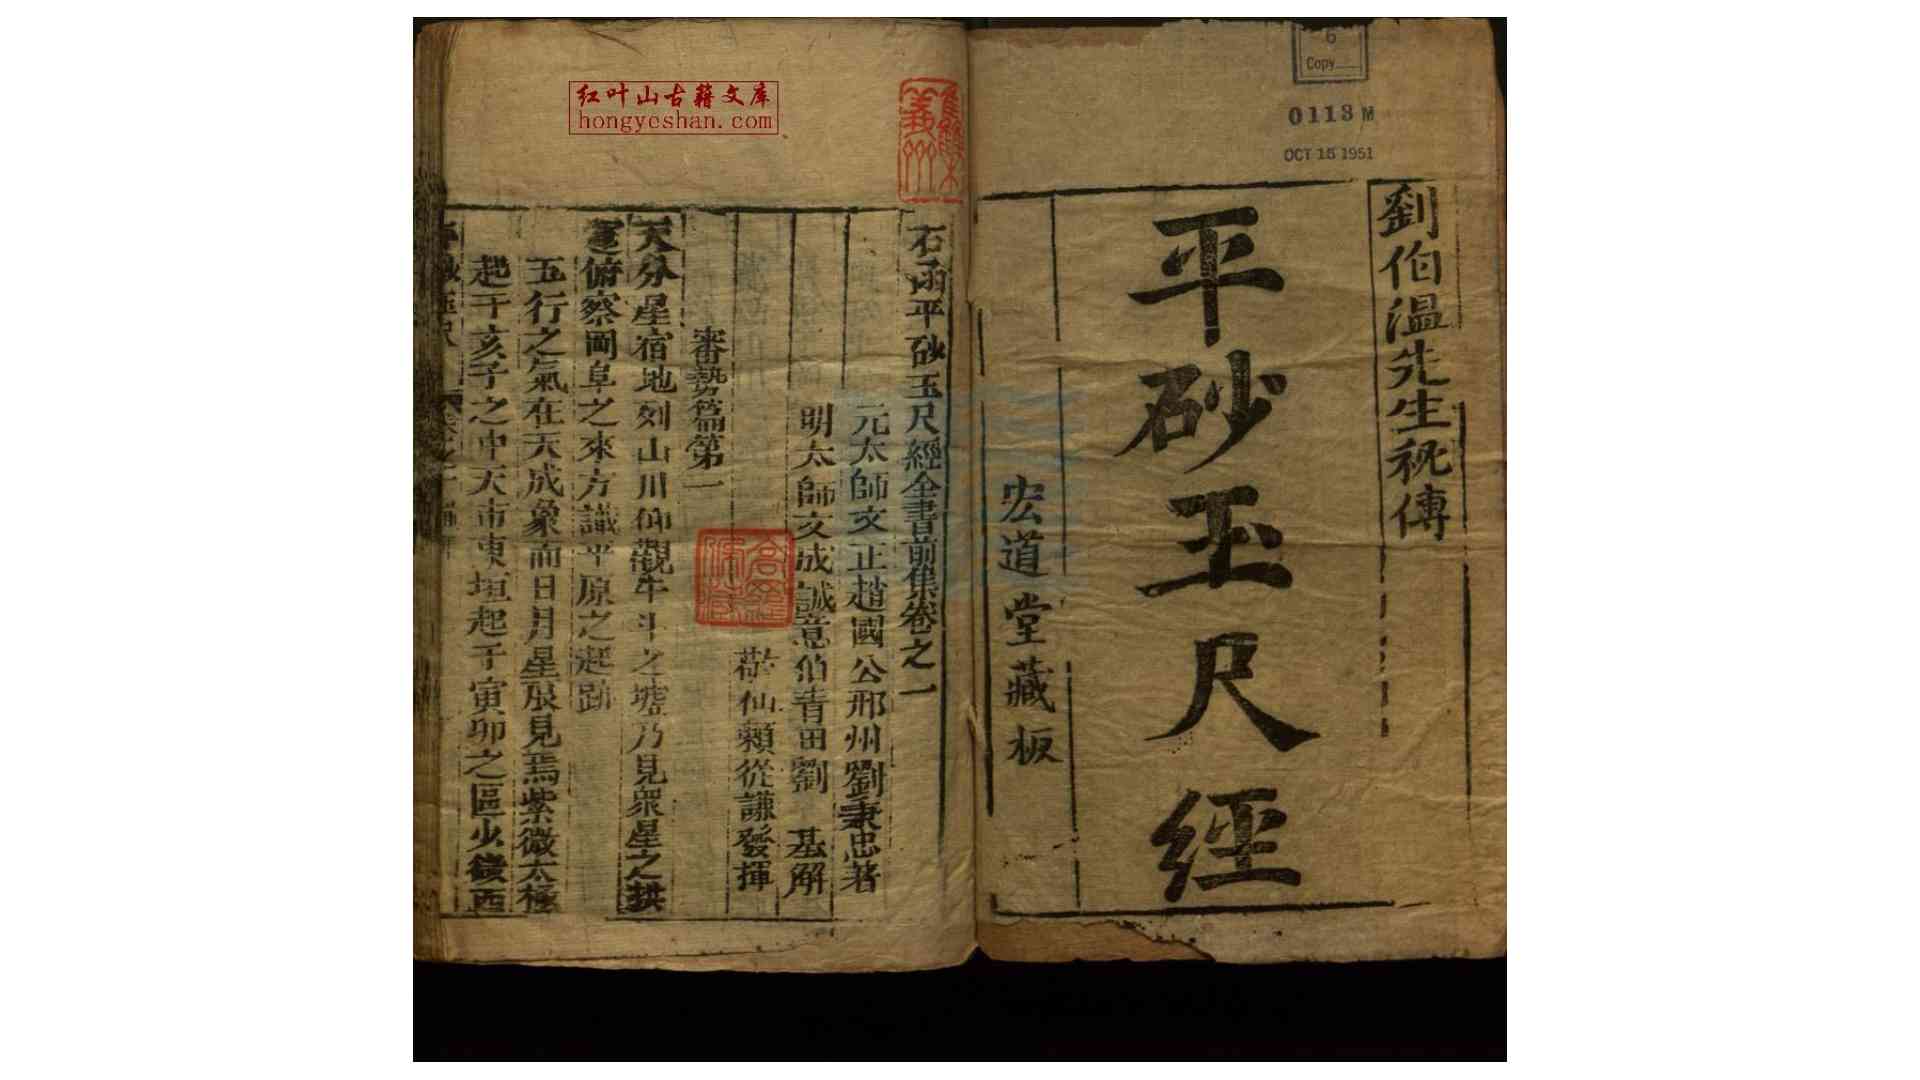 6
Copy
0113 M
OCT 15 1951
劉伯溫先生祕傳
平砂玉尺經
宏道堂藏板
红叶山古籍文库
hongyeshan.com
石函平砂玉尺經全書前集卷之一
元太師文正趙國公邢州劉秉忠著
明太師文成誠意伯青田劉 基解
仙賴從謙發揮
審勢篇第一
天分星宿地列山川仰觀牛斗之墟乃見衆星之拱
俯察岡阜之來方識平原之起跡
五行之氣在天成象而日月星辰見焉紫微太極
起于亥子之中天市東垣起于寅卯之區少微西